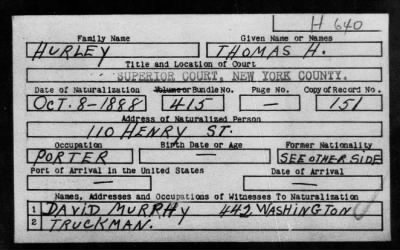 H 640
Family Name Given Name or Names
HURLEY THOMAS H.
Title and Location of Court
SUPERIOR COURT, NEW YORK COUNTY.
Date of Naturalization Volume or Bundle No. Page No. Copy of Record No.
OCT. 8-1888 415 — 151
Address of Naturalized Person
110 HENRY ST.
Occupation Birth Date or Age Former Nationality
PORTER — SEE OTHER SIDE
Port of Arrival in the United States Date of Arrival
— —
Names, Addresses and Occupations of Witnesses To Naturalization
1 DAVID MURPHY 442 WASHINGTON
2 TRUCKMAN.